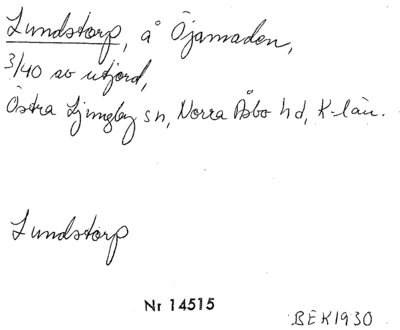 Lundstorp, å Öjamaden,
3/40 av utjord,
Östra Ljungby sn, Norra Åsbo hd, K-län.
Lundstorp
Nr 14515
BEK1930